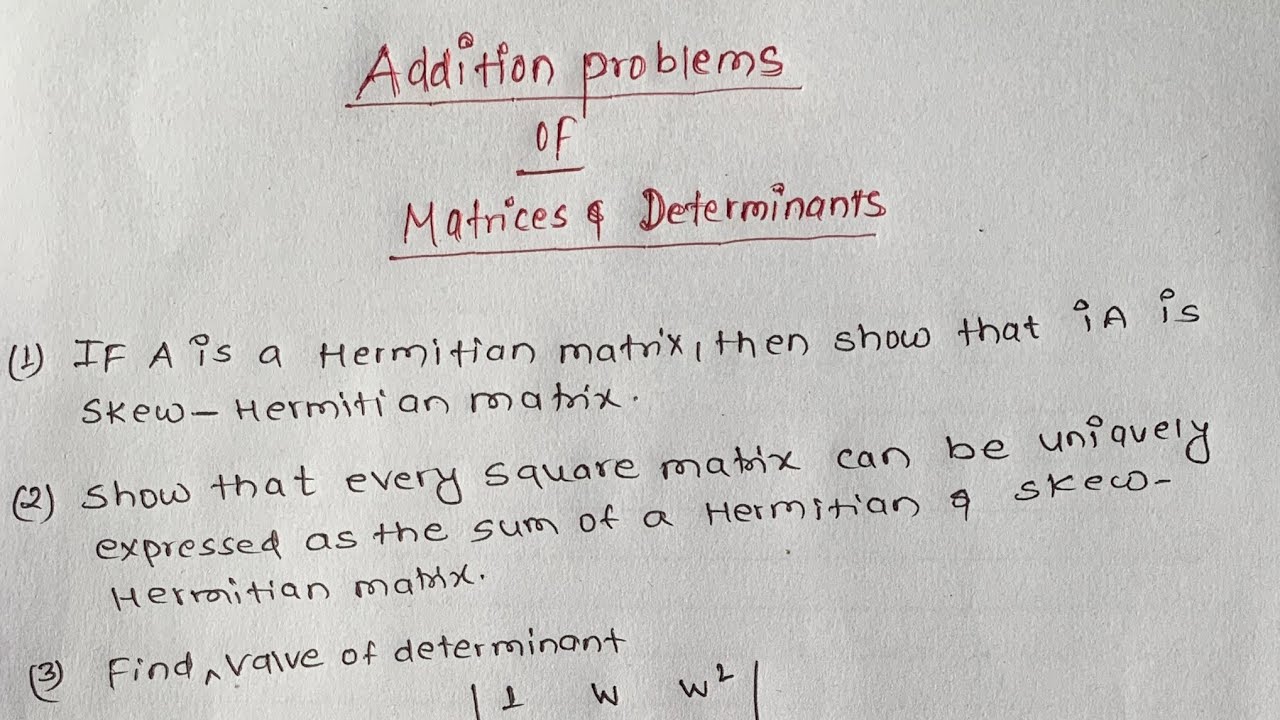 Addition problems
of
Matrices & Determinants
(1) IF A is a Hermitian matrix, then show that iA is
skew-Hermitian matrix.
(2) Show that every square matrix can be uniquely
expressed as the sum of a Hermitian & skew-
Hermitian matrix.
(3) Find ^ value of determinant
| 1 w w² |